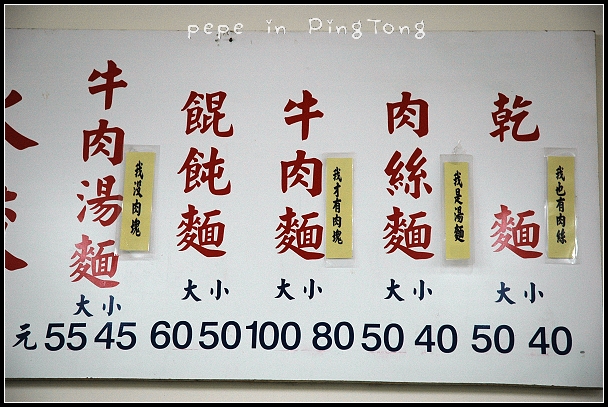 pepe in PingTong
乾麵
我也有肉絲
大小
50 40
肉絲麵
我是湯麵
大小
50 40
牛肉麵
我才有肉塊
大小
100 80
餛飩麵
大小
60 50
牛肉湯麵
我沒肉塊
大小
55 45
元